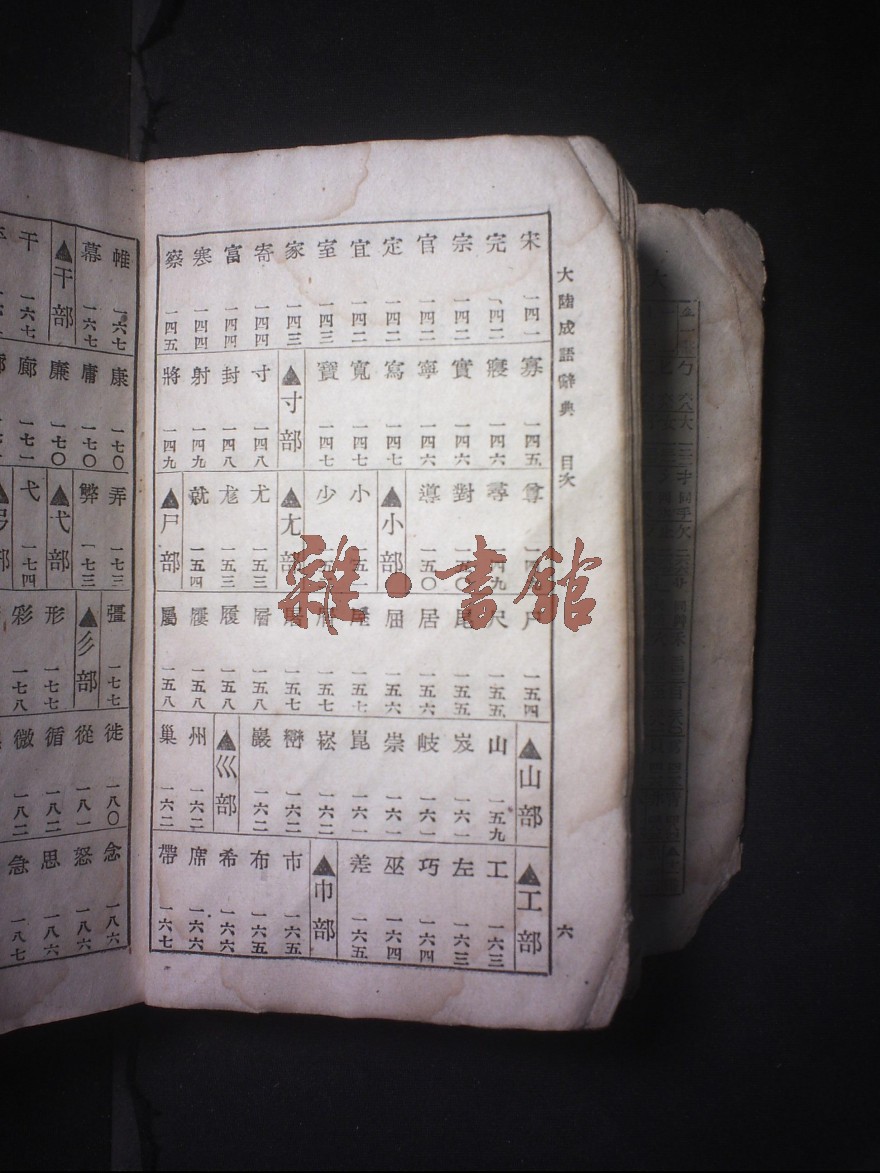 大陸成語辭典 目次
宋 一四一 完 一四二 宗 一四二 官 一四二 定 一四二 宜 一四二 室 一四三 家 一四三 寄 一四四 富 一四四 寒 一四四 察 一四五
寡 一四五 寢 一四六 實 一四六 寧 一四六 寫 一四七 寬 一四七 寶 一四七 ▲寸部 寸 一四八 封 一四八 射 一四九 將 一四九
尊 尋 對 導 一五〇 ▲小部 小 少 ▲尢部 尤 一五三 尨 一五三 就 一五四 ▲尸部
尸 一五四 尺 一五五 尾 一五五 居 一五六 屈 一五六 一五七 一五七 一五七 層 一五八 履 一五八 屨 一五八 屬 一五八
▲山部 山 一五九 岌 一六一 岐 一六一 崇 一六一 崑 一六一 崧 一六二 巒 一六二 巖 一六二 ▲巛部 州 一六二 巢 一六二
▲工部 工 一六三 左 一六三 巧 一六四 巫 一六四 差 一六五 ▲巾部 市 一六五 布 一六五 希 一六六 席 一六六 帶 一六七
六
帷 一六七 幕 一六七 ▲干部 干 一六七
康 一七〇 庸 一七〇 廉 一七〇 廊 一七一
弄 一七三 弊 一七三 ▲弋部 弋 一七四
彊 一七七 ▲彡部 形 一七七 彩 一七八
徙 一八〇 從 一八一 循 一八二 微 一八二
念 一八六 怒 一八六 思 一八六 急 一八七
雜·書館